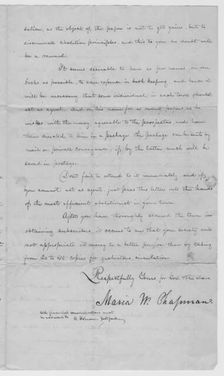 dation, as the object of the paper is not to get gain, but to
disseminate abolition principles and this to you no doubt will
be a reward.
It seems desirable to have as few names on our
books as possible to save expense in book keeping and hence it
will be necessary that some individual in each town should
act as agent and in his name for as many papers as he
wishes with the money agreeable to the prospectus and have
them directed to him in a package the package can be sent by
mail or private conveyance, if by the latter much will be
saved in postage.
Don't fail to attend to it immediately and if
you cannot act as agent, just pass this letter into the hands
of the most efficient abolitionist in your town.
After you have thoroughly scoured the town in
obtaining subscribers, it seems to me that your society could
not appropriate its money to a better purpose than by taking
from 20 to 100 copies for gratuitous circulation.
Respectfully Yours for God & the slave
Maria W. Chapman.